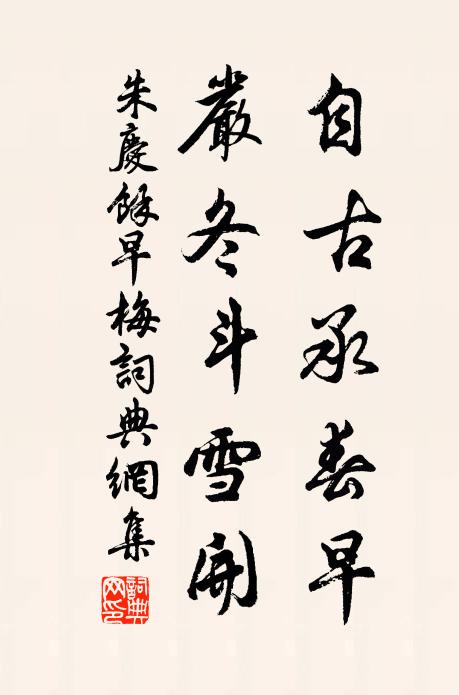 自古承春早
嚴冬斗雪開
朱慶餘早梅詞典網集
詞典網印